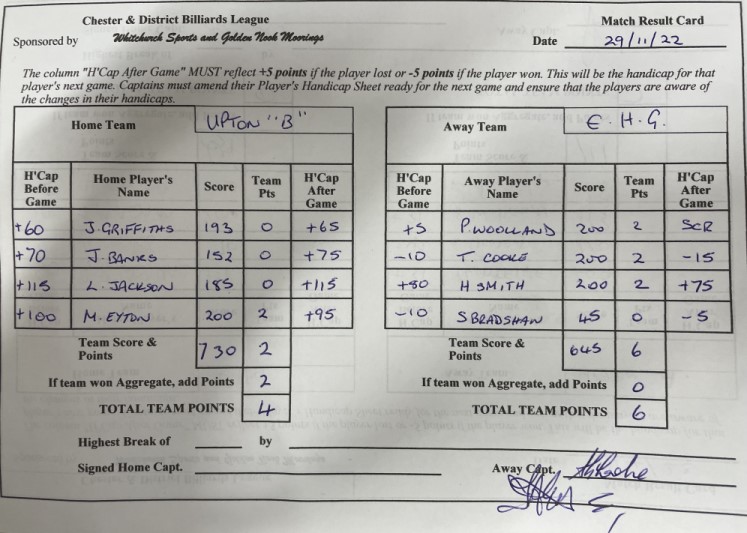 Chester & District Billiards League
Match Result Card
Sponsored by Whitchurch Sports and Golden Nook Moorings
Date 29/11/22
The column "H'Cap After Game" MUST reflect +5 points if the player lost or -5 points if the player won. This will be the handicap for that
player's next game. Captains must amend their Player's Handicap Sheet ready for the next game and ensure that the players are aware of
the changes in their handicaps.
Home Team UPTON "B"
Away Team E.H.G.
H'Cap Before Game Home Player's Name Score Team Pts H'Cap After Game
+60 J. GRIFFITHS 193 0 +65
+70 J. BANKS 152 0 +75
+115 L. JACKSON 185 0 +115
+100 M. EYTON 200 2 +95
Team Score & Points 730 2
If team won Aggregate, add Points 2
TOTAL TEAM POINTS 4
H'Cap Before Game Away Player's Name Score Team Pts H'Cap After Game
+5 P. WOOLLAND 200 2 SCR
-10 T. COOKE 200 2 -15
+80 H SMITH 200 2 +75
-10 S BRADSHAW 45 0 -5
Team Score & Points 645 6
If team won Aggregate, add Points 0
TOTAL TEAM POINTS 6
Highest Break of by
Signed Home Capt.
Away Capt.